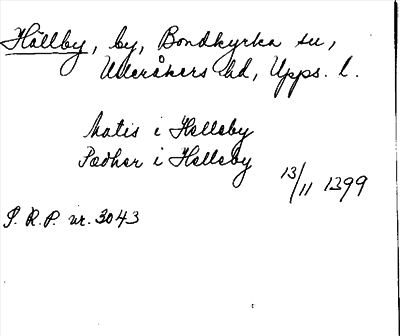 Hällby, by, Bondkyrka sn,
Ulleråkers hd, Upps. l.
Matis i Helleby
Pædhar i Helleby
13/11 1399
S. R. P. nr. 3043